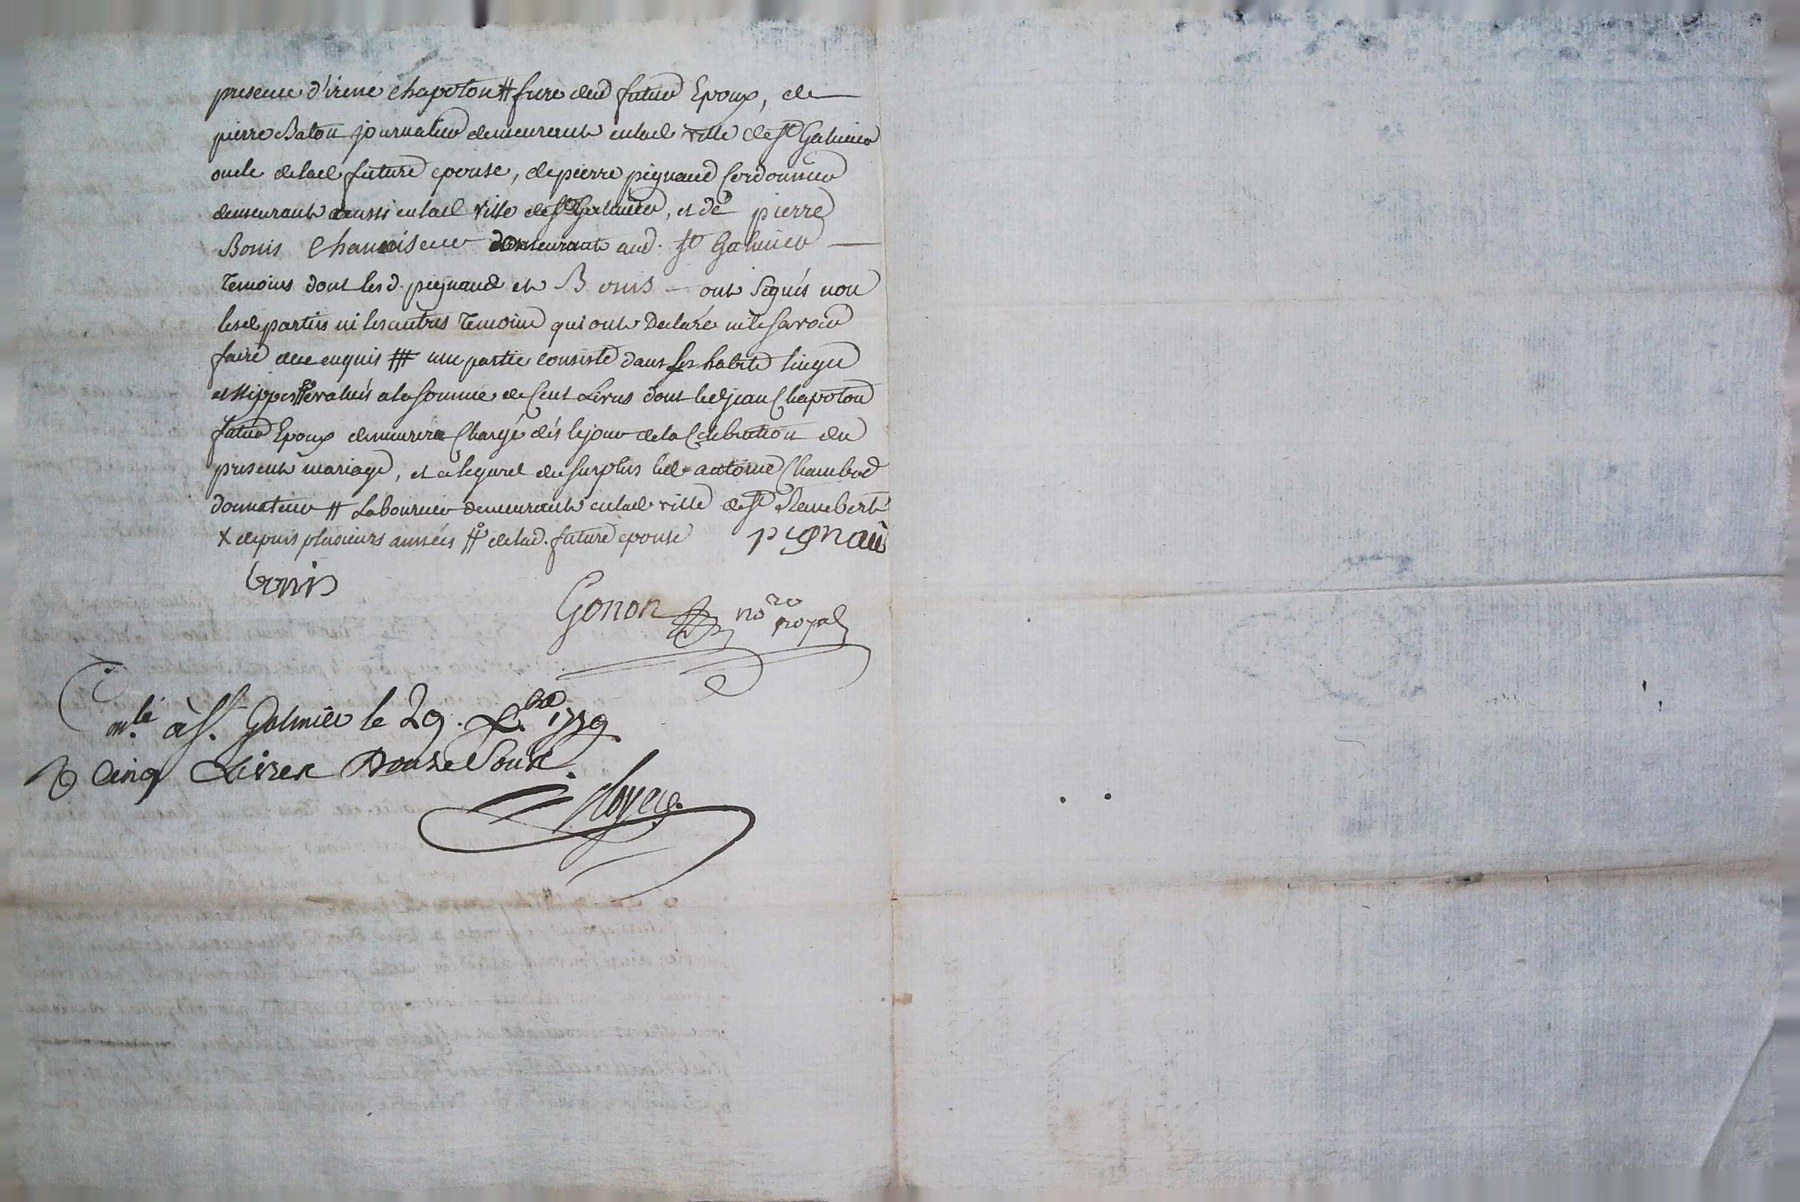 presence d'irené chapoton # frere dud futur Epoux, de
pierre Baton journalier demeurant en lad ville de St Galmier
oncle de lad future epouse, de pierre pignaud Cordonnier
demeurant aussi en lad ville de St Galmier, et de pierre
Bonis Chanviseur demeurant aud. St Galmier
Temoins dont lesd. pignaud et Bonis ont signés non
lesd parties ni les autres Temoins qui ont Declaré ne le savoir
faire de ce enquis ## une partie consiste dans ses habits linges
et Nippes # evalués a la somme de Cent Livres dont led jean Chapoton
futur Epoux demeurera Chargé dés le jour de la Celebration du
present mariage, et a legard du surplus led antoine Chambod
donnateur # Laboureur demeurant en lad ville de St Rambert
X depuis plusieurs années # de lad. future epouse pignaü
bonis
Gonon nore royal
mlé à St. Galmier le 29. bre 1759.
Cinq Livres Douze Sous.